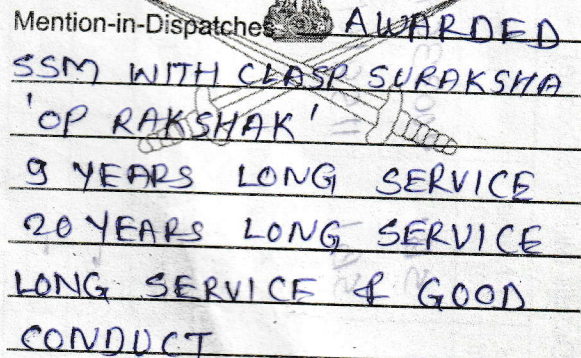 Mention-in-Dispatches AWARDED
SSM WITH CLASP SURAKSHA
'OP RAKSHAK'
9 YEARS LONG SERVICE
20 YEARS LONG SERVICE
LONG SERVICE & GOOD
CONDUCT